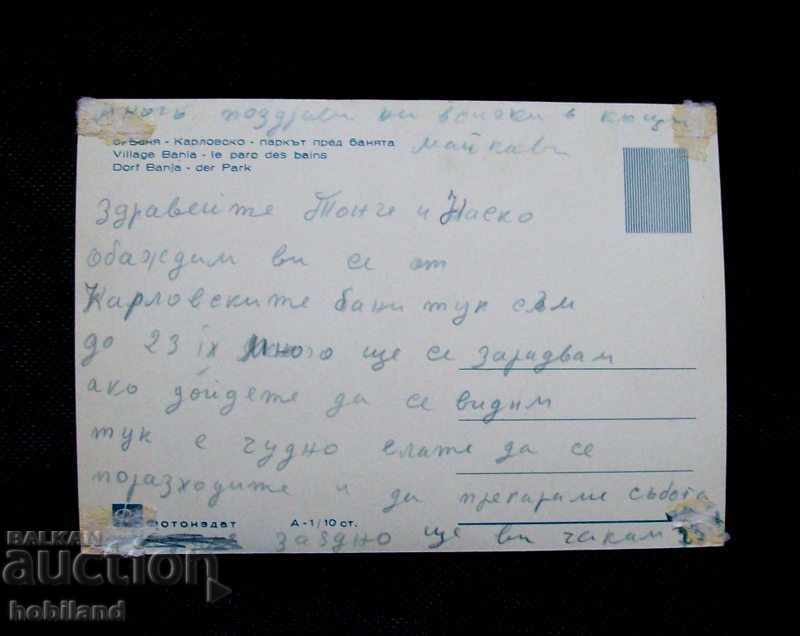 много поздрави на всички в къщи
с. Баня - Карловско - паркът пред банята
майкави
Village Bania - le parc des bains
Dorf Banja - der Park
Здравейте Тонче и Наско
обаждим ви се от
Карловските бани тук съм
до 23 IX Много ще се зарадвам
ако дойдете да се видим
тук е чудно елате да се
поразходите и да прекараме събота
Фотоиздат А-1/10 ст.
заедно ще ви чакам
BALKAN
auction
hobiland